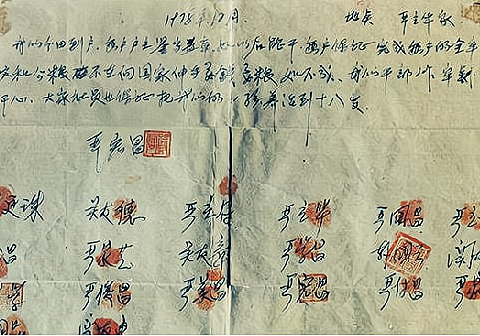 1978年12月. 地点 严立华家
我们分田到户,每户户主签字盖章,如以后能干,每户保证完成每户的全年上
交和公粮,不在向国家伸手要钱要粮,如不成,我们干部作牢杀头也
干心,大家社员也保证把我们的小孩养活到十八岁.
严宏昌
廷珠 关友德 严立符 严立华 严国昌 严立
昌 严家芝 关友章 严学昌 韩国云 关友
学 严俊昌 严美昌 严宏昌 严付昌 严家